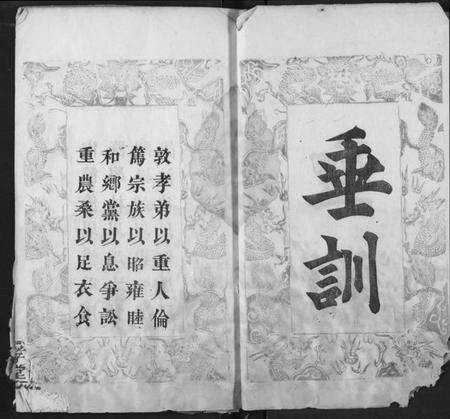 垂訓
敦孝弟以重人倫
篤宗族以昭雍睦
和鄉黨以息爭訟
重農桑以足衣食